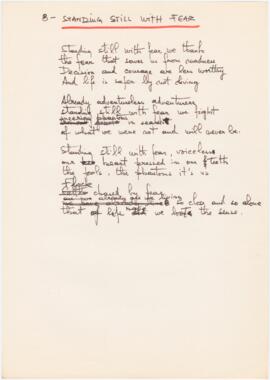 8 - STANDING STILL WITH FEAR
Standing still with fear we thank
the fear that saves us from vardness
Decision and courage are here worthy
And life is safer by not diving
Already adventureless adventurers
standing still with fear we fight
in search
of what we were not and will never be.
Standing still with fear, voiceless
our heart pressed in our teeth
the fools, the phantoms it's us
chased by fear
so close and so alone
that of life we lose the sense.